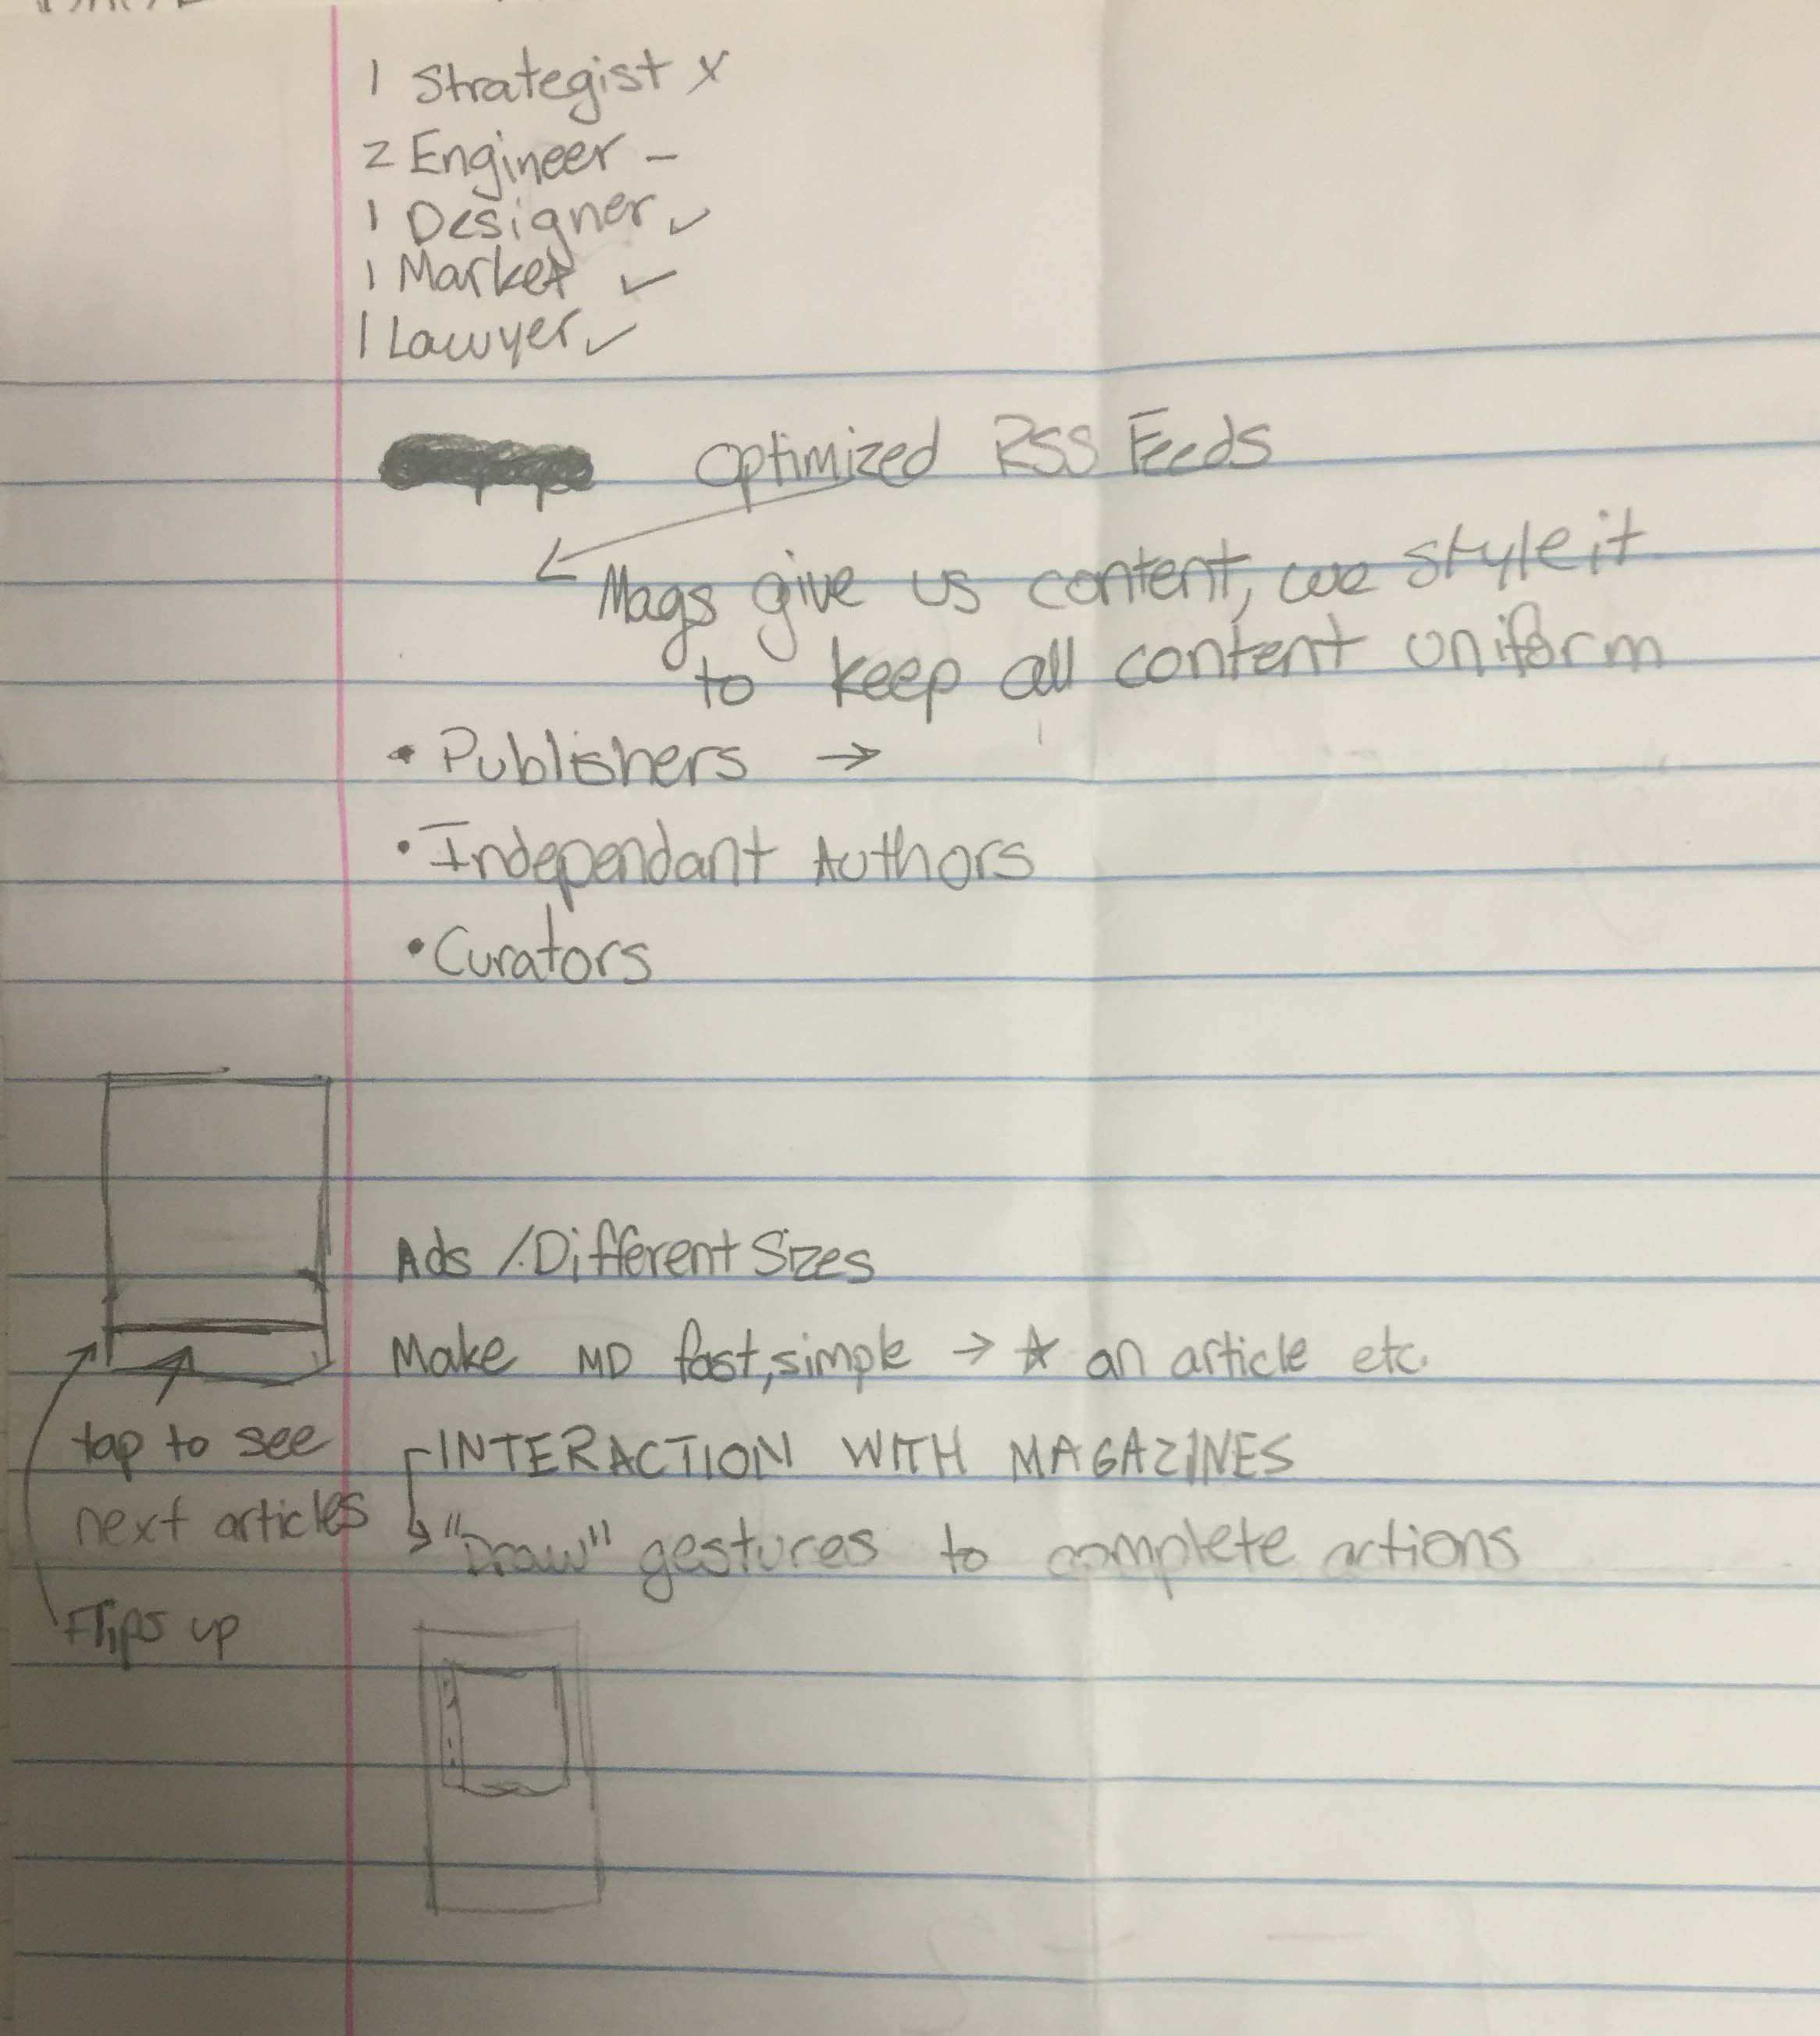 1 Strategist x
2 Engineer –
1 Designer ✓
1 Market ✓
1 Lawyer ✓
Optimized RSS Feeds
Mags give us content, we style it
to keep all content uniform
• Publishers →
• Independant Authors
• Curators
Ads / Different Sizes
Make MD fast, simple → ☆ an article etc.
tap to see
next articles
Flips up
INTERACTION WITH MAGAZINES
"Draw" gestures to complete actions